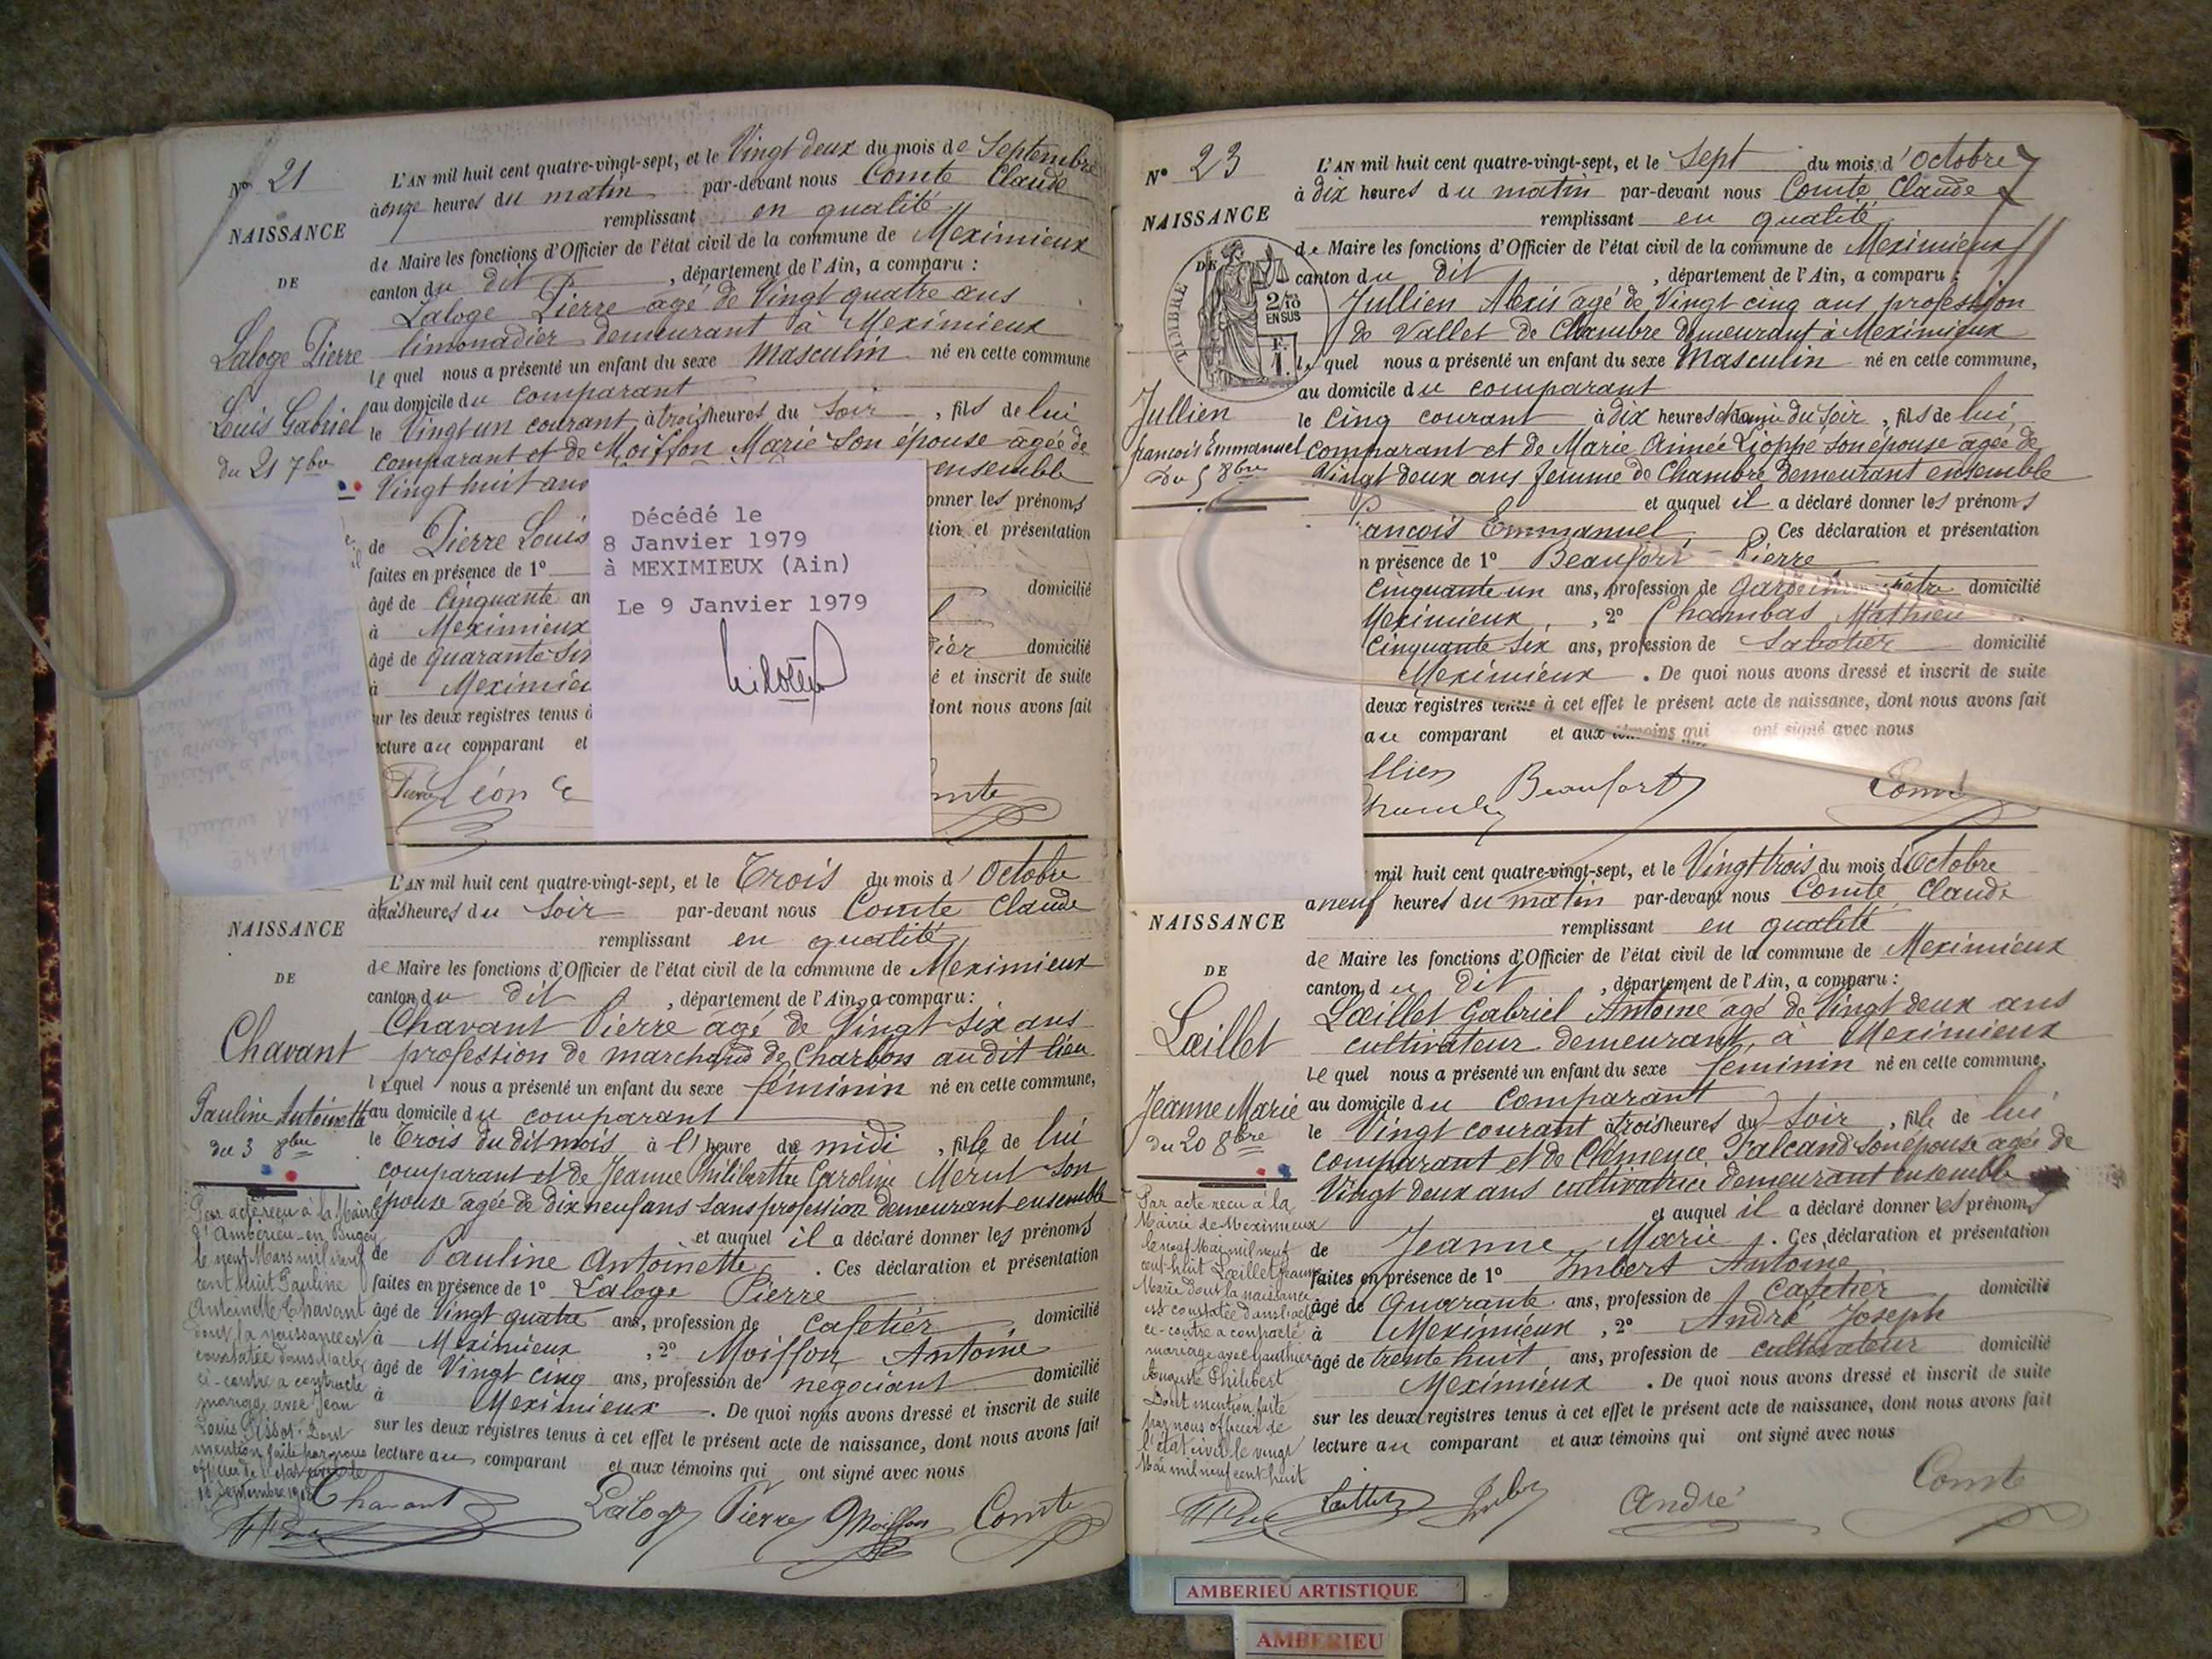 N° 21
NAISSANCE
DE
Laloge Pierre
Louis Gabriel
du 21 7bre
L'AN mil huit cent quatre-vingt-sept, et le Vingt deux du mois de Septembre
à onze heures du matin par-devant nous Comte Claude
remplissant en qualité
de Maire les fonctions d'Officier de l'état civil de la commune de Meximieux
canton du dit, département de l'Ain, a comparu :
Laloge Pierre agé de Vingt quatre ans
limonadier demeurant à Meximieux
le quel nous a présenté un enfant du sexe Masculin né en cette commune
au domicile du comparant
le Vingt un courant à trois heures du soir, fils de lui
comparant et de Moiffon Marie son épouse agée de
Vingt huit ans ensemble
onner les prénoms
de Pierre Louis tion et présentation
faites en présence de 1°
âgé de Cinquante an domicilié
à Meximieux
âgé de quarante six ier domicilié
à Meximieu é et inscrit de suite
ur les deux registres tenus à dont nous avons fait
cture au comparant et
Léon mte
Décédé le
8 Janvier 1979
à MEXIMIEUX (Ain)
Le 9 Janvier 1979
NAISSANCE
DE
Chavant
Pauline Antoinette
du 3 8bre
L'AN mil huit cent quatre-vingt-sept, et le Trois du mois d'Octobre
à trois heures du soir par-devant nous Comte Claude
remplissant en qualité
de Maire les fonctions d'Officier de l'état civil de la commune de Meximieux
canton du dit, département de l'Ain, a comparu :
Chavant Pierre agé de Vingt six ans
profession de marchand de Charbon au dit lieu
lequel nous a présenté un enfant du sexe féminin né en cette commune,
au domicile du comparant
le Trois du dit mois à l'heure de midi, fille de lui
comparant et de Jeanne Philiberthe Caroline Merut son
épouse agée de dix neuf ans sans profession demeurant ensemble
et auquel il a déclaré donner les prénoms
de Pauline Antoinette. Ces déclaration et présentation
faites en présence de 1° Laloge Pierre
âgé de Vingt quatre ans, profession de cafetier, domicilié
à Meximieux, 2° Moiffon Antoine
âgé de Vingt cinq ans, profession de negociant domicilié
à Meximieux. De quoi nous avons dressé et inscrit de suite
sur les deux registres tenus à cet effet le présent acte de naissance, dont nous avons fait
lecture au comparant et aux témoins qui ont signé avec nous
Par acte reçu à la Mairie
d'Ambérieu-en-Bugey
le neuf Mars mil neuf
cent huit Pauline
Antoinette Chavant
dont la naissance est
constatée dans l'acte
ci-contre a contracté
mariage avec Jean
Louis Pissot. Dont
mention faite par nous
officier de l'état civil le
Chavant Laloge Pierre Moiffon Comte
N° 23
NAISSANCE
DE
TIMBRE
2/10
EN SUS
F.
1.
Jullien
françois Emmanuel
Du 5 8bre
L'AN mil huit cent quatre-vingt-sept, et le Sept du mois d'Octobre
à dix heures du matin par-devant nous Comte Claude
remplissant en qualité
de Maire les fonctions d'Officier de l'état civil de la commune de Meximieux
canton du dit, département de l'Ain, a comparu :
Jullien Alexis agé de Vingt cinq ans profession
de Vallet de Chambre demeurant à Meximieux
le quel nous a présenté un enfant du sexe Masculin né en cette commune,
au domicile du comparant
le Cinq courant à dix heures et demi du soir, fils de lui
comparant et de Marie Aimée Lioppe son épouse agée de
Vingt deux ans femme de Chambre demeurant ensemble
et auquel il a déclaré donner les prénoms
ancois Emmanuel, Ces déclaration et présentation
n présence de 1° Beaufort Pierre
Cinquante un ans, profession de garde domicilié
Meximieux, 2° Chambas Mathieu
Cinquante six ans, profession de Sabotier domicilié
Meximieux. De quoi nous avons dressé et inscrit de suite
deux registres tenus à cet effet le présent acte de naissance, dont nous avons fait
au comparant et aux témoins qui ont signé avec nous
llien Beaufort Comte
NAISSANCE
DE
Lœillet
Jeanne Marie
du 20 8bre
mil huit cent quatre-vingt-sept, et le Vingt trois du mois d'Octobre
a neuf heures du matin par-devant nous Comte Claude
remplissant en qualité
de Maire les fonctions d'Officier de l'état civil de la commune de Meximieux
canton du Dit, département de l'Ain, a comparu :
Lœillet Gabriel Antoine agé de Vingt deux ans
cultivateur demeurant à Meximieux
le quel nous a présenté un enfant du sexe feminin né en cette commune,
au domicile du Comparant
le Vingt courant à trois heures du soir, fille de lui
comparant et de Clémence Falcand son épouse agée de
Vingt deux ans cultivatrice demeurant ensemble
et auquel il a déclaré donner les prénoms
de Jeanne Marie. Ces déclaration et présentation
faites en présence de 1° Imbert Antoine
âgé de Quarante ans, profession de cafetier domicilié
à Meximieux, 2° André Joseph
âgé de trente huit ans, profession de cultivateur domicilié
Meximieux. De quoi nous avons dressé et inscrit de suite
sur les deux registres tenus à cet effet le présent acte de naissance, dont nous avons fait
lecture au comparant et aux témoins qui ont signé avec nous
Par acte reçu à la
Mairie de Meximieux
le neuf Mai mil neuf
cent huit Lœillet Jeanne
Marie dont la naissance
est constatée dans l'acte
ci-contre a contracté
mariage avec Gauthier
Auguste Philibert
Dont mention faite
par nous officier de
l'état civil le vingt
Mai mil neuf cent huit
André Comte
AMBERIEU ARTISTIQUE
AMBERIEU